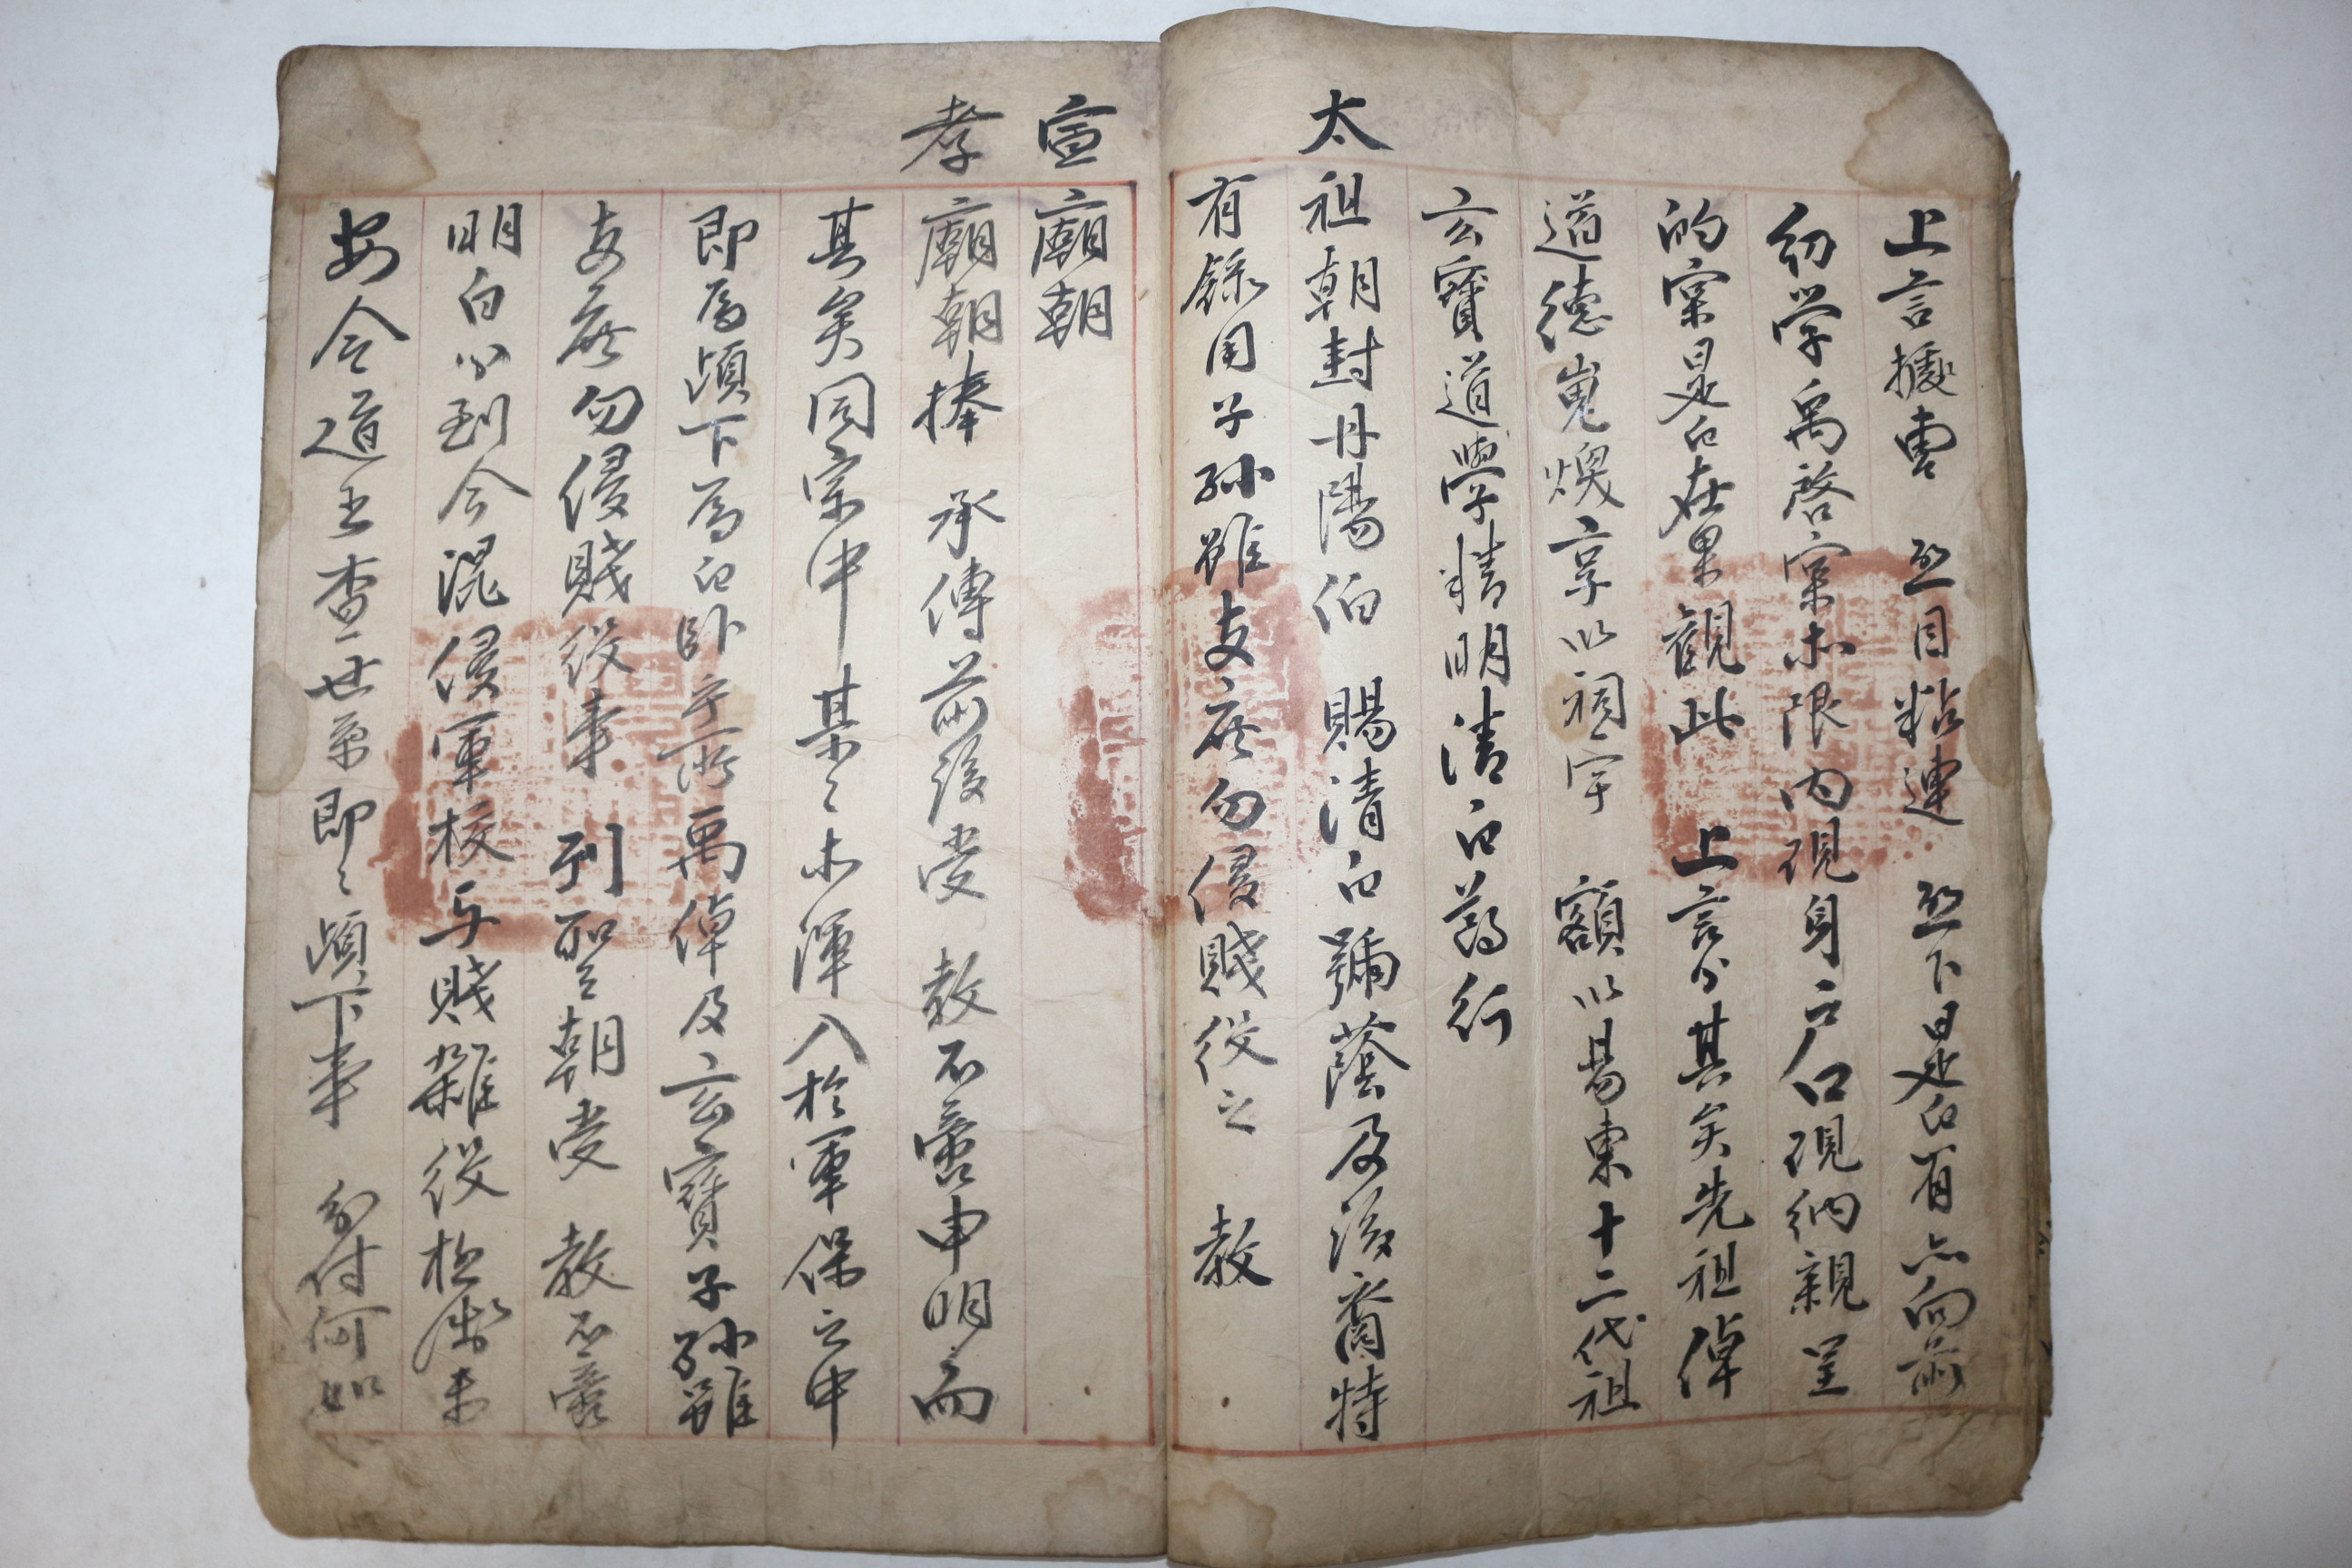 上言據曹 啓目粘連 啓下是白有亦向前
幼學禹啓宗未限內現身戶口現納親呈
的宗是白在果觀此 上言則其矣先祖倬
道德嵬煥享以祠宇 額以易東十二代祖
玄寶道學精明淸白著行
太祖朝封丹陽伯 賜清白號蔭及後裔特
有錄用子孫雖支庶勿侵賤役之 敎
宣廟朝
孝廟朝捧 承傳前後受 敎不啻申明而
其矣同宗中某某未渾入於軍保之中
即爲頉下爲白臥乎所禹倬及玄寶子孫雖
支庶勿侵賤役事 列聖朝受 敎不啻
明白分 到今混侵軍校与賤雜役極
今道 查世系即即頉下事 分付何如